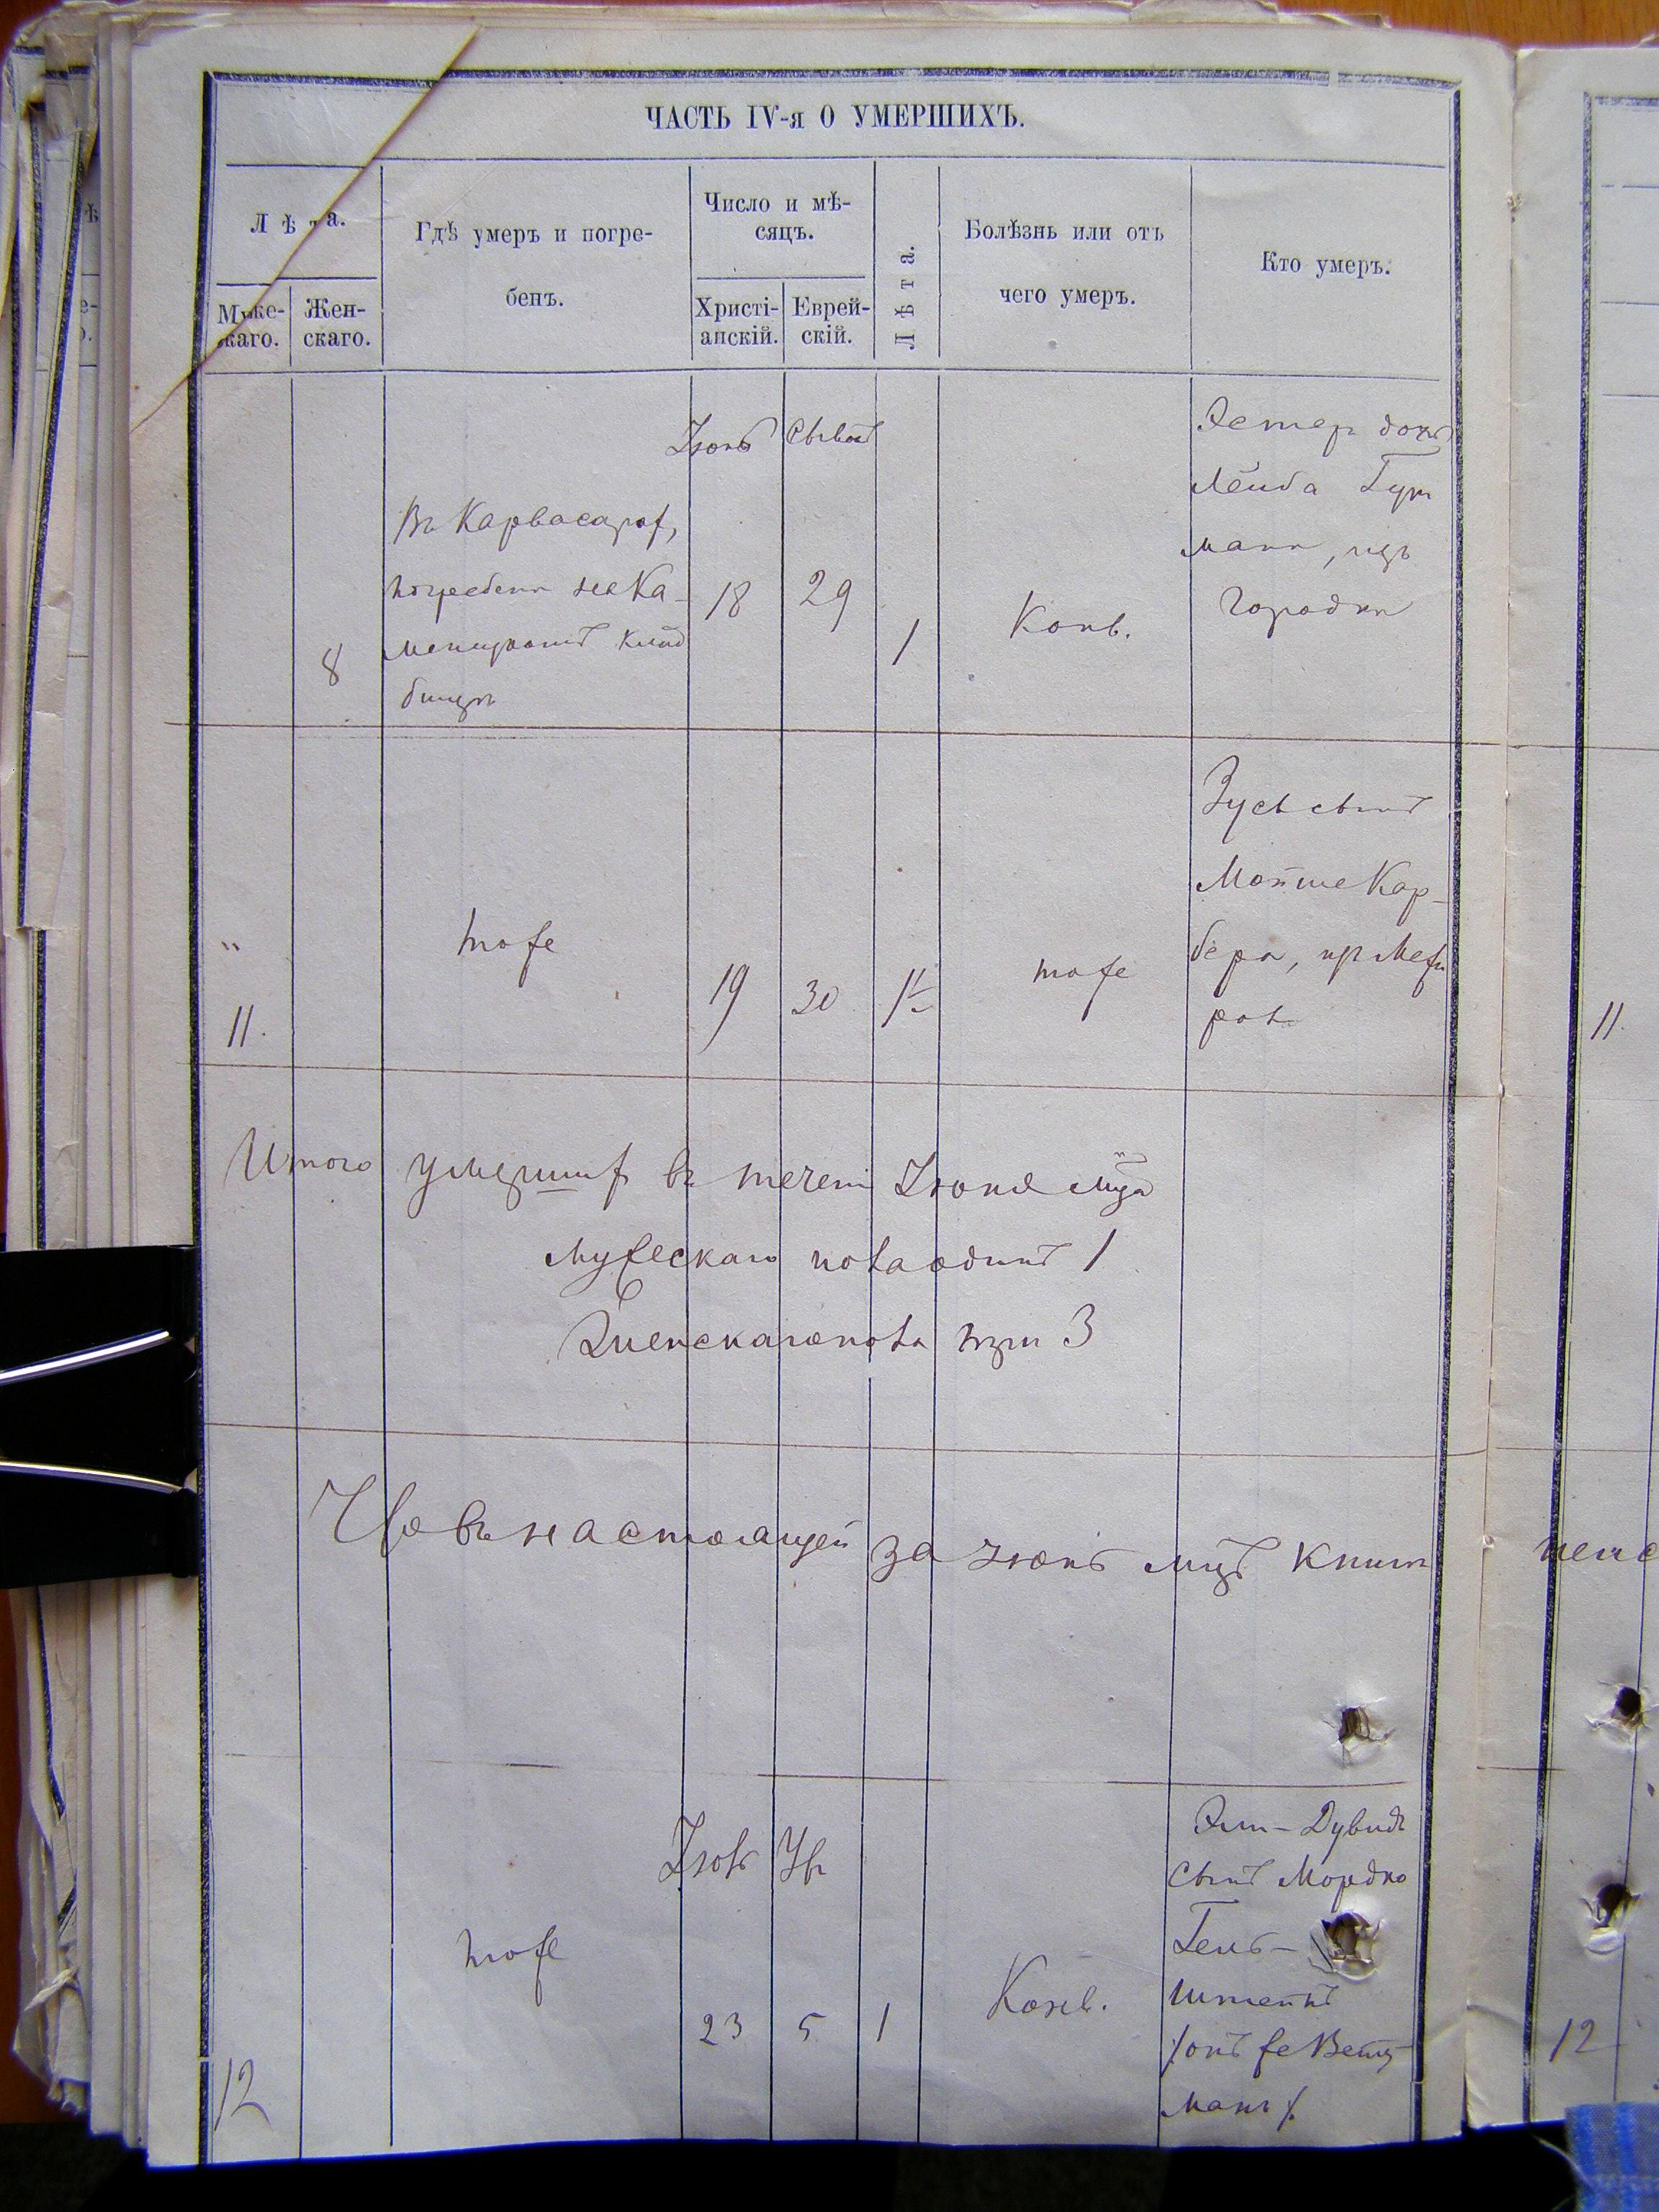 ЧАСТЬ IV-я О УМЕРШИХЪ.
Лѣта.
Муже-
скаго.
Жен-
скаго.
Гдѣ умеръ и погре-
бенъ.
Число и мѣ-
сяцъ.
Христі-
анскій.
Еврей-
скій.
Лѣта.
Болѣзнь или отъ
чего умеръ.
Кто умеръ.
8
Въ Карвасарах,
погребена на Ка-
менецкомъ клад
бищѣ
Іюнь
18
Сиванъ
29
1
Конв.
Эстер дочь
Лейба Гут
манъ, изъ
Городка
"
11.
тоже
19
30
1½
тоже
Зусь сынъ
Мойше Кар-
бера, из Межи
ров
11.
Итого умерших въ течени Іюня мца
мужескаго пола одинъ 1
Женскаго пола три 3
Что въ настоящей за Іюнь мцъ книги
12
тоже
Іюль
23
5
1
Конв.
Эли-Дувидъ
сынъ Мордко
Гель-
штейнъ
/онъ же Вейц
манъ/.
12